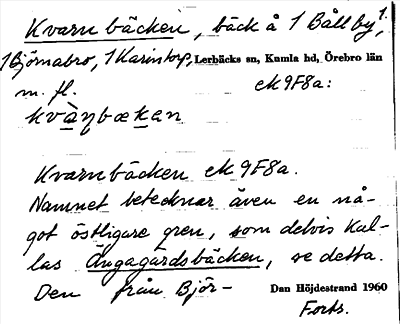 Kvarnbäcken, bäck å 1 Bållby 1.,
1 Björnabro, 1 Karintorp, Lerbäcks sn, Kumla hd, Örebro län
m. fl. ek 9F8a:
kvàṇbœkan
Kvarnbäcken ek 9F8a.
Namnet betecknar även en nå-
got östligare gren, som delvis kal-
las Ängagärdsbäcken, se detta.
Den från Björ- Dan Höjdestrand 1960
Forts.